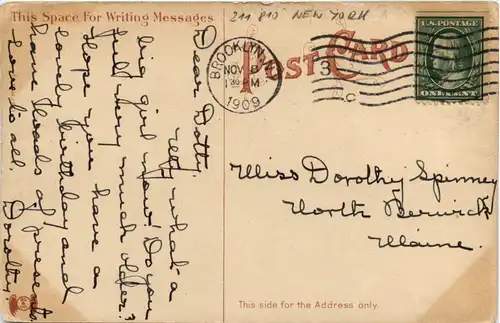 This Space For Writing Messages
211 810 NEW YORK
POST CARD
BROOKLYN, N.Y.
NOV 8
1 30 PM
1909
3
C
U.S. POSTAGE
ONE CENT
Dear Dotty.
what a
big girl now! Do you
feel very much older?
Hope you have a
lovely birthday and
have loads of presents.
Love to all. Dorothy.
Miss Dorothy Spinney
North Berwick
Maine.
This side for the Address only.